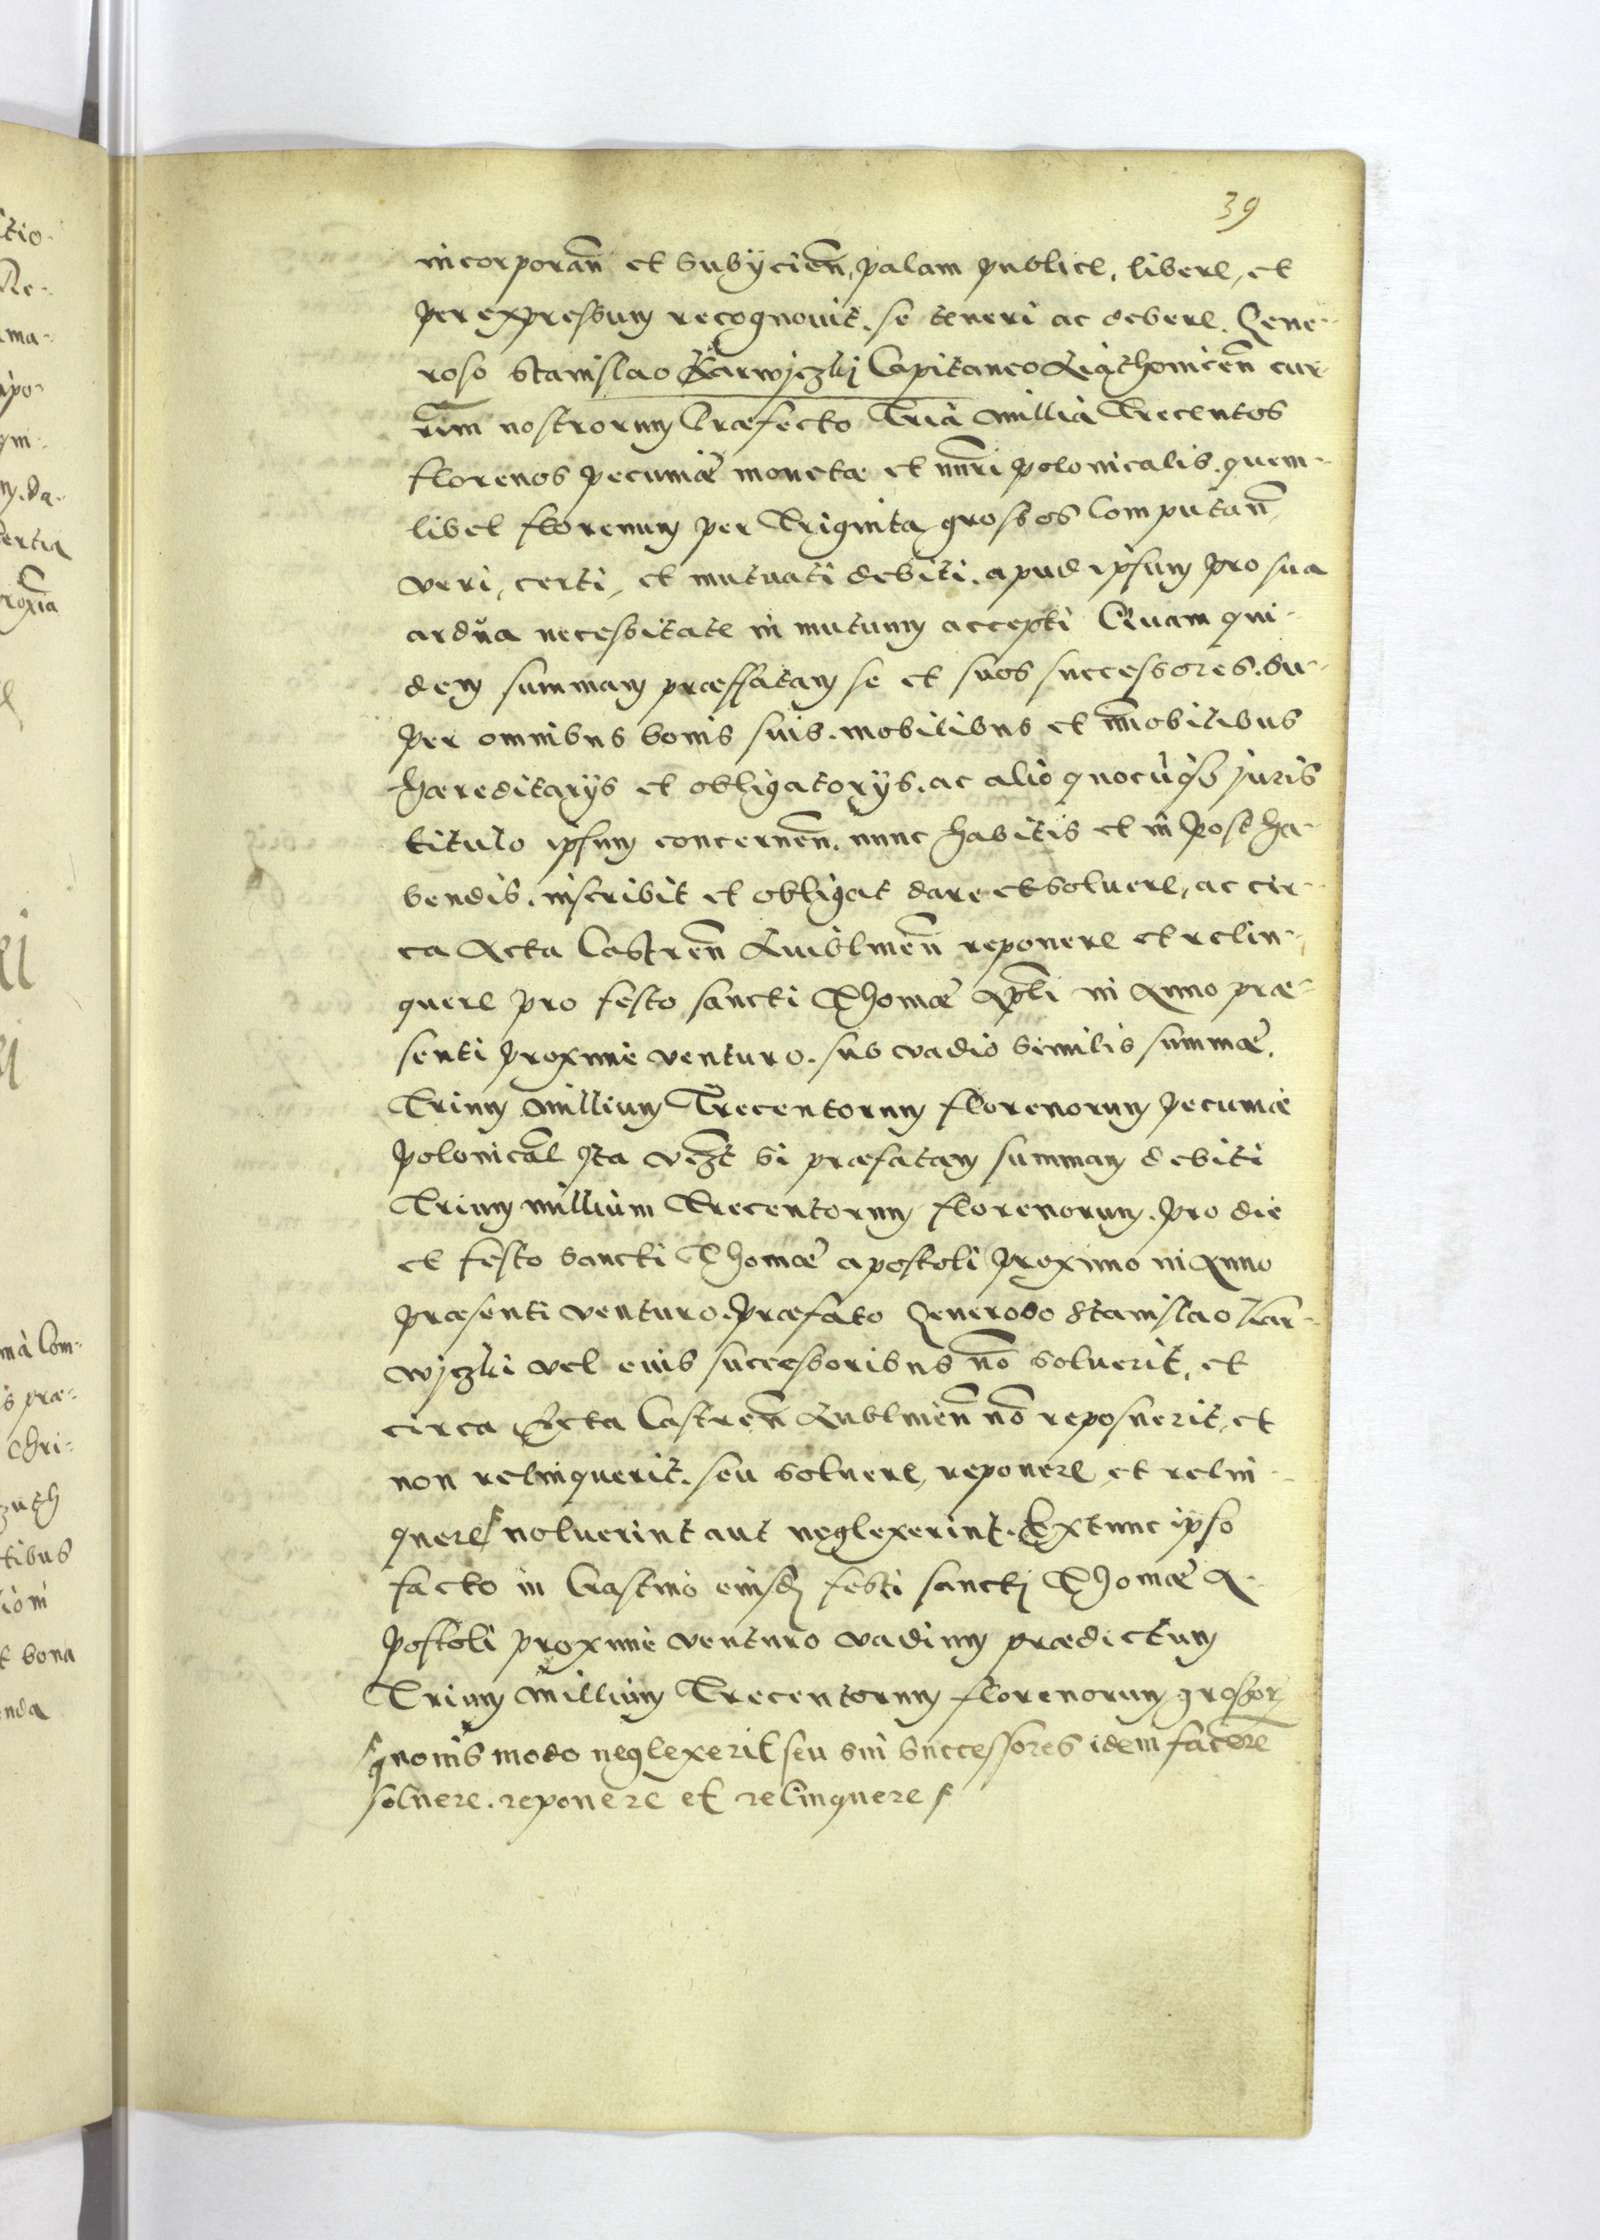 39
incorporan̄ et subÿcien̄, palam publice, libere, et
per expressum recognovit. se teneri ac debere. Gene-
roso Stanislao Karwiczkÿ Capitaneo Liathonicen̄ cur-
rūm nostrorum Præfecto Tria Millia Trecentos
florenos pecuniæ monetæ et nr̄i polonicalis. quem-
libet florenum per Triginta grossos Computan̄,
veri, certi, et mutuati debiti. apud ipsum pro sua
ardŭa necessitate in mutuum accepti Quam qui-
dem summam præffatam se et suos successores. su-
per omnibus bonis suis. mobilibus et īmobilibus
Hæreditarÿs et obligatorÿs. ac alio quocūqȝ juris
titulo ipsum concernen̄. nunc habitis et in post ha-
bendis. inscribit et obligat dare et solvere, ac cir-
ca Acta Castren̄ Lublinen̄ reponere et relin-
quere pro festo sancti Thomæ Ap̄li in Anno præ-
senti proxime venturo. sub vadio similis summæ.
Trium Millium Trecentorum florenorum pecuniæ
polonical̄ Ita vēzt si præfatam summam debiti
Trium millium Trecentorum florenorum. pro die
et festo sancti Thomæ apostoli proximo in Anno
præsenti venturo. præfato Generoso Stanislao Kar-
wiczki vel eius successoribus nō solverit, et
circa Acta Castren̄ Lublinen̄ nō reposuerit, et
non relinquerit. seu solvere, reponere et relin-
quere noluerint aut neglexerint. Extunc ipso
facto in Crastino eiusdē festi sanctj Thomæ A-
postoli proxime venturo vadium prædictum
Trium Millium Trecentorum florenorum grossorꝝ
quovis modo neglexerit seu sui successores idem facere
solvere. reponere et relinquere